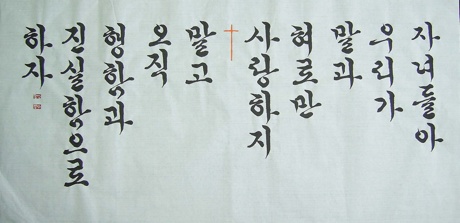 자녀들아
우리가
말과
혀로만
사랑하지
말고
오직
행함과
진실함으로
하자